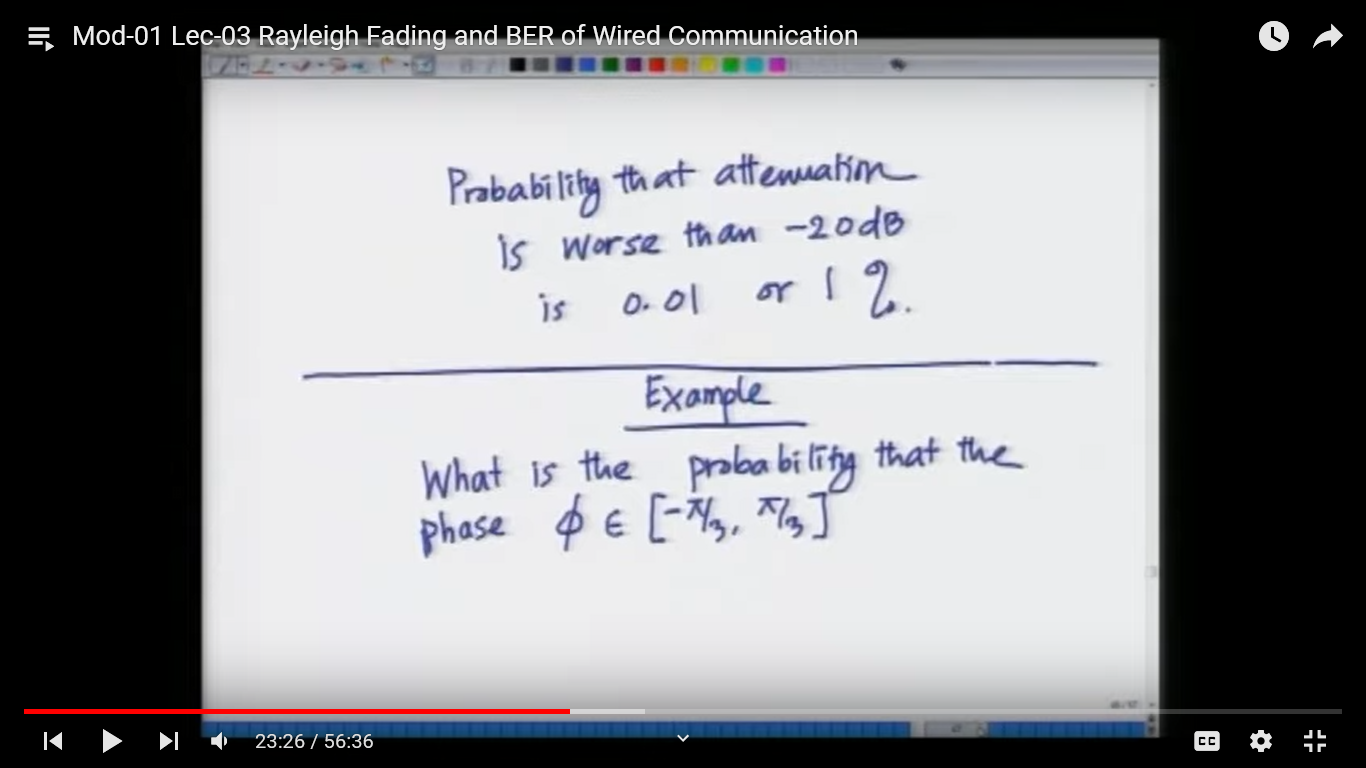 Mod-01 Lec-03 Rayleigh Fading and BER of Wired Communication
Probability that attenuation
is worse than -20dB
is 0.01 or 1 %.
Example
What is the probability that the
phase ϕ ∈ [-π/3, π/3]
23:26 / 56:36
CC